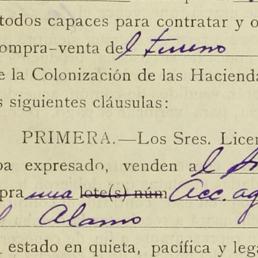 todos capaces para contratar y o
ompra-venta del terreno
e la Colonización de las Hacienda
s siguientes cláusulas:
PRIMERA.—Los Sres. Licen
ba expresado, venden al
pra una lote(s) núm Acc. ag
El Alamo
estado en quieta, pacífica y lega